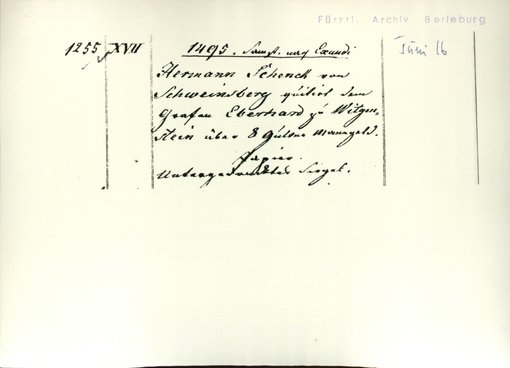 Fürstl. Archiv Berleburg
1255 XVII 1495. Samst. nach Exaudi Juni 16
Hermann Schenck von
Schweinsberg quitirt dem
Grafen Eberhard zu Witgen,
stein über 8 Gulden Manngeld.
Papier.
Untergedrucktes Siegel.